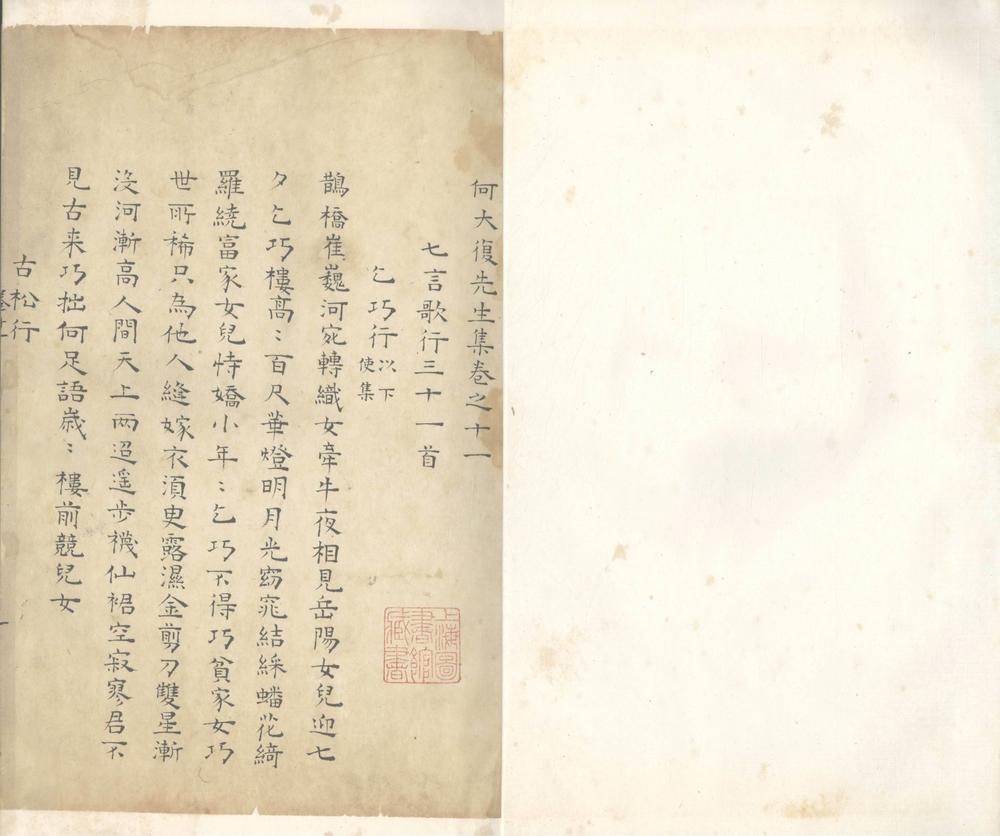 何大復先生集卷之十一
七言歌行三十一首
乞巧行以下使集
鵲橋崔巍河宛轉織女牽牛夜相見岳陽女兒迎七
夕乞巧樓高〻百尺華燈明月光窈窕結綵蟠花綺
羅繞富家女兒恃嬌小年〻乞巧不得巧貧家女巧
世所稀只為他人縫嫁衣須臾露濕金剪刀雙星漸
沒河漸高人間天上兩迢遥步襪仙裙空寂寥君不
見古来巧拙何足語歲〻樓前競兒女
古松行
上海圖書館藏書